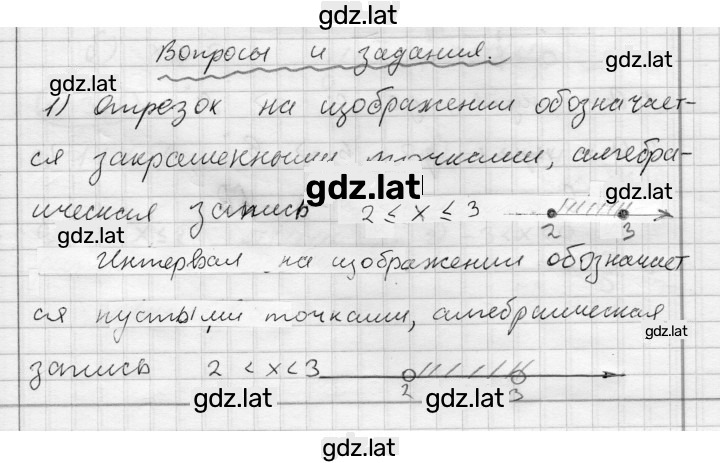 gdz.lat
Вопросы и задания.
gdz.lat
gdz.lat
1) Отрезок на изображении обозначает-
ся закрашенными точками, алгебра-
gdz.lat
gdz.lat
ическая запись 2 ≤ x ≤ 3
2 3
gdz.lat
Интервал на изображении обозначает
ся пустыми точками, алгебраическая
gdz.lat
запись 2 < x < 3
2 3
gdz.lat
gdz.lat
gdz.lat